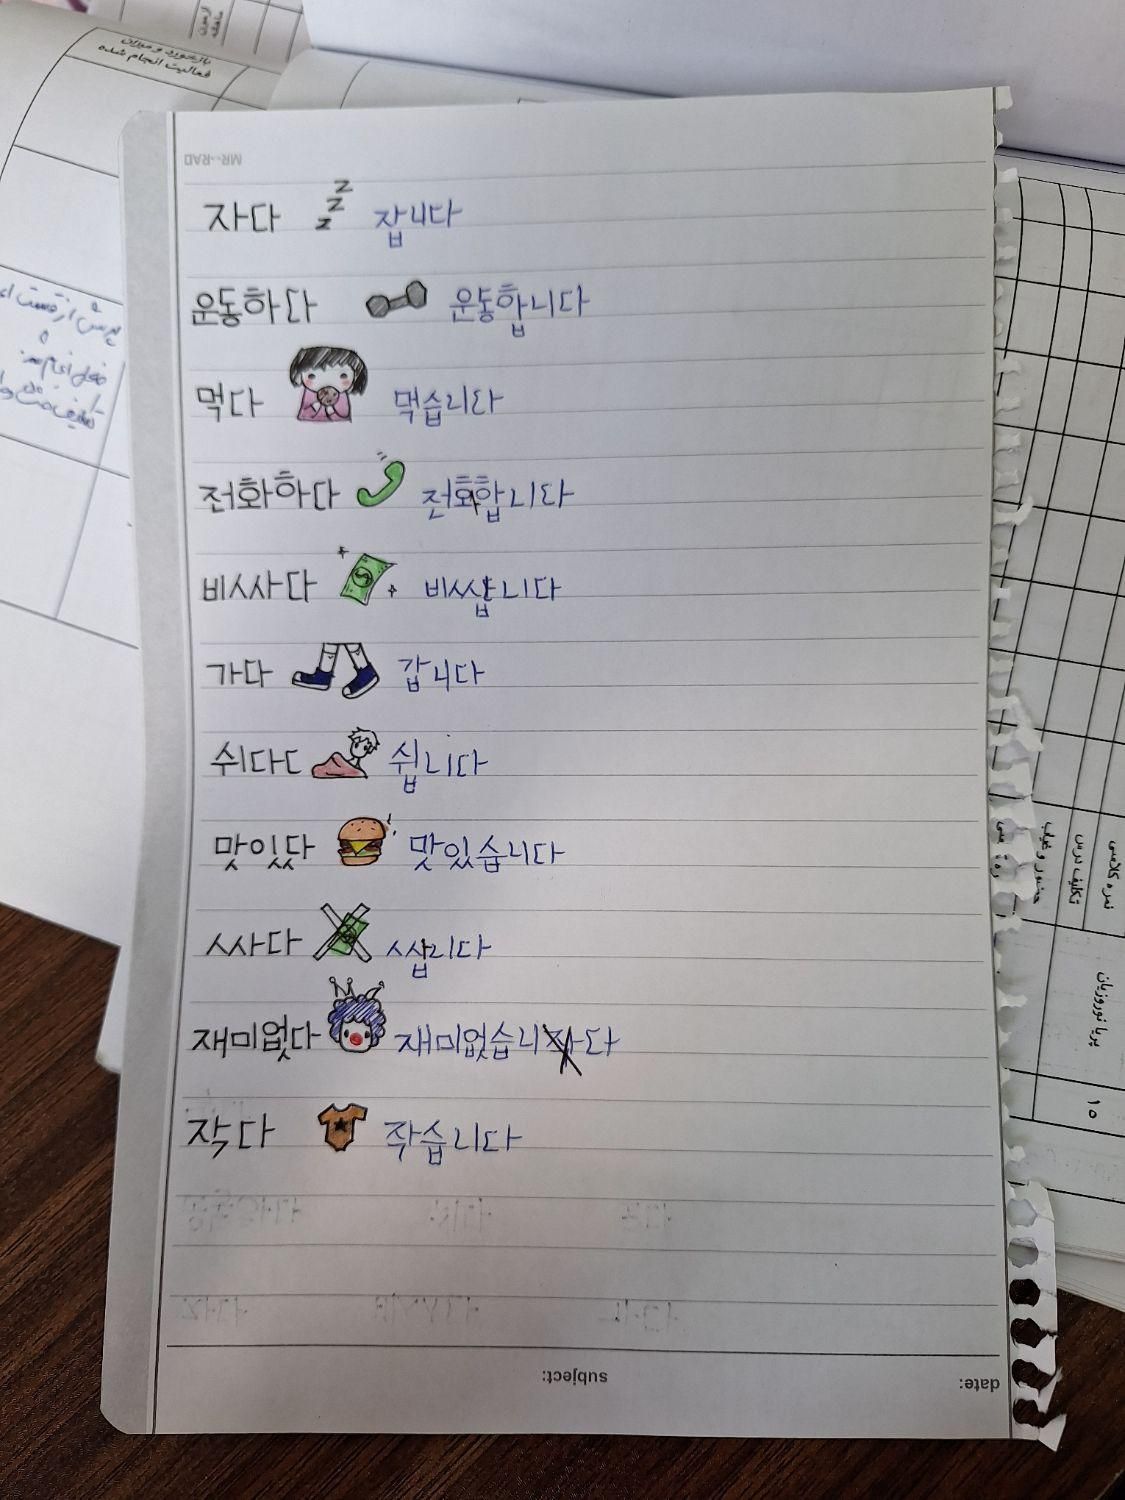 بازخورد و میزان
فعالیت انجام شده
MR-RAD
자다 z z z 잡니다
운동하다 운동합니다
먹다 먹습니다
전화하다 전화합니다
비싸다 비쌉니다
가다 갑니다
쉬다ㄷ 쉽니다
맛있다 맛있습니다
싸다 쌉니다
재미없다 재미없습니다
작다 작습니다
subject:
date:
نمره کلاسی
تکلیف درس
حضور و غیاب
پریا نوروزیان
۱۵